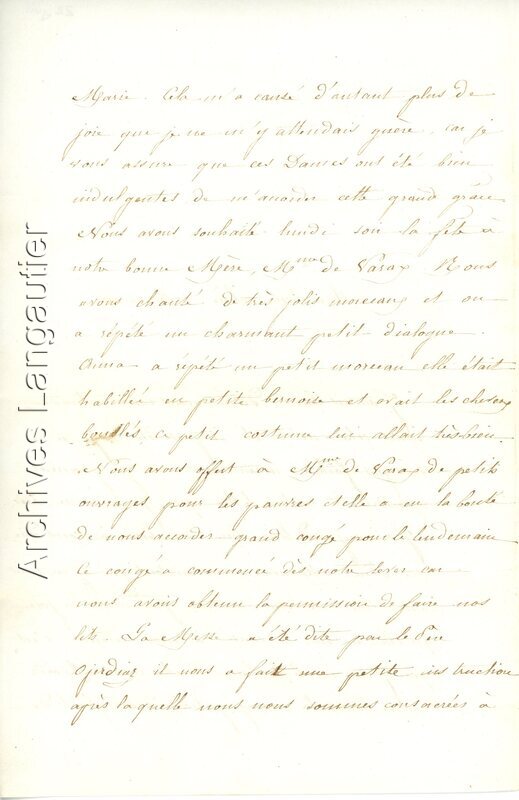 Marie. Cela m'a causé d'autant plus de
joie que je ne m'y attendais guère, car je
vous assure que ces Dames ont été bien
indulgentes de m'accorder cette grand grâce
Nous avons souhaité lundi soir la fête à
notre bonne Mère, Mme de Varax. Nous
avons chanté de très jolis morceaux et on
a répété un charmant petit dialogue.
Anna a répété un petit morceau elle était
habillée en petite bernoise et avait les cheveux
bouclés, ce petit costume lui allait très bien.
Nous avons offert à Mme de Varax de petits
ouvrages pour les pauvres et elle a eu la bonté
de nous accorder grand congé pour le lendemain
Ce congé a commencé dès notre lever car
nous avions obtenu la permission de faire nos
lits. La Messe a été dite par le Père
il nous a fait une petite instruction
après laquelle nous nous sommes consacrées à
Archives Langautier